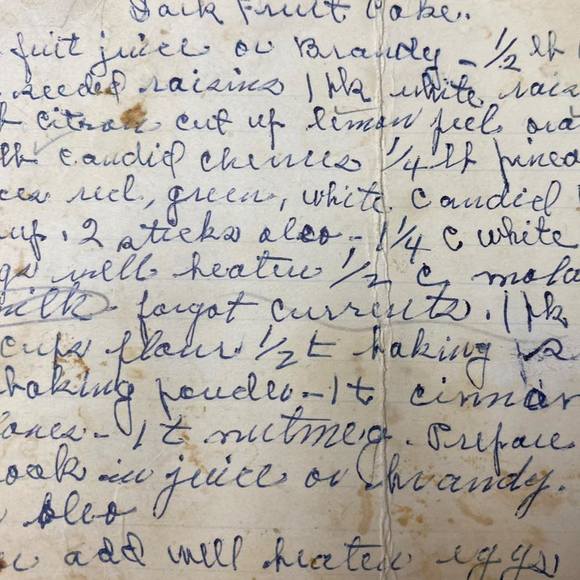 Dark Fruit Cake.
fuit juice or Brandy - 1/2 lb
seeded raisins 1 pk white rais
citron cut up lemon peel ora
lb candied cherries 1/4 lb pinea
ces red, green, white candied
up. 2 sticks oleo - 1 1/4 c white
gs well beaten 1/2 c mola
milk - forgot currents. 1 pk
cups flour 1/2 t baking
baking powder - 1 t cinnam
loves - 1 t nutmeg. Prepare
oak in juice or brandy.
oleo
add well beaten eggs